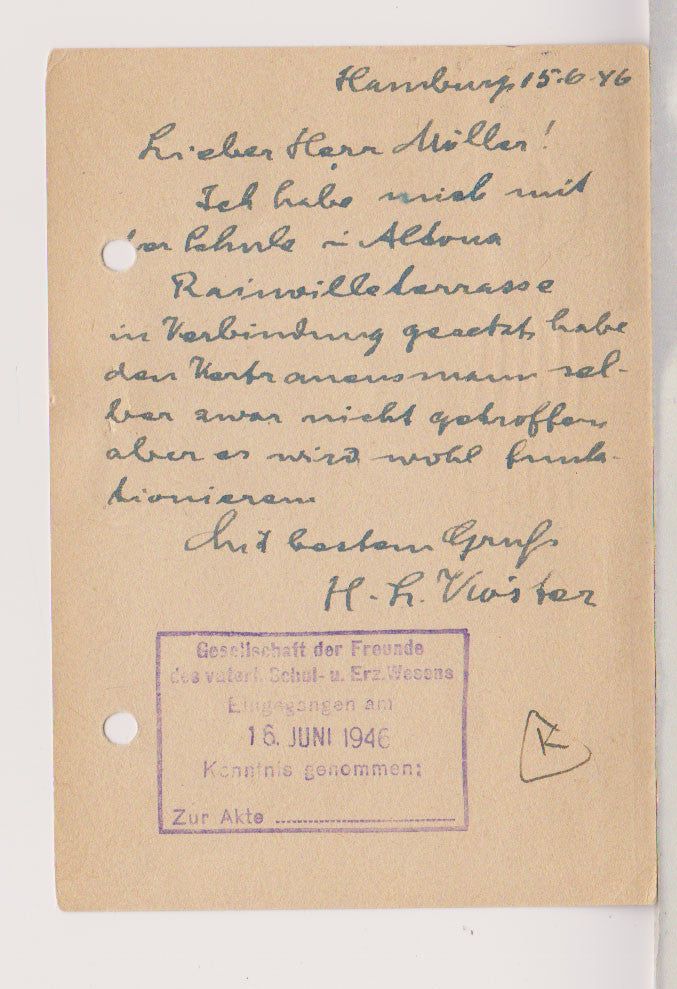 Hamburg 15.6.46
Lieber Herr Müller!
Ich habe mich mit
der Schule in Altona
Rainvilleterrasse
in Verbindung gesetzt, habe
den Vertrauensmann sel-
ber zwar nicht getroffen,
aber es wird wohl funk-
tionieren.
Mit bestem Gruß
H. L. Köster
Gesellschaft der Freunde
des vaterl. Schul- u. Erz.Wesens
Eingegangen am
16. JUNI 1946
Kenntnis genommen:
Zur Akte
K